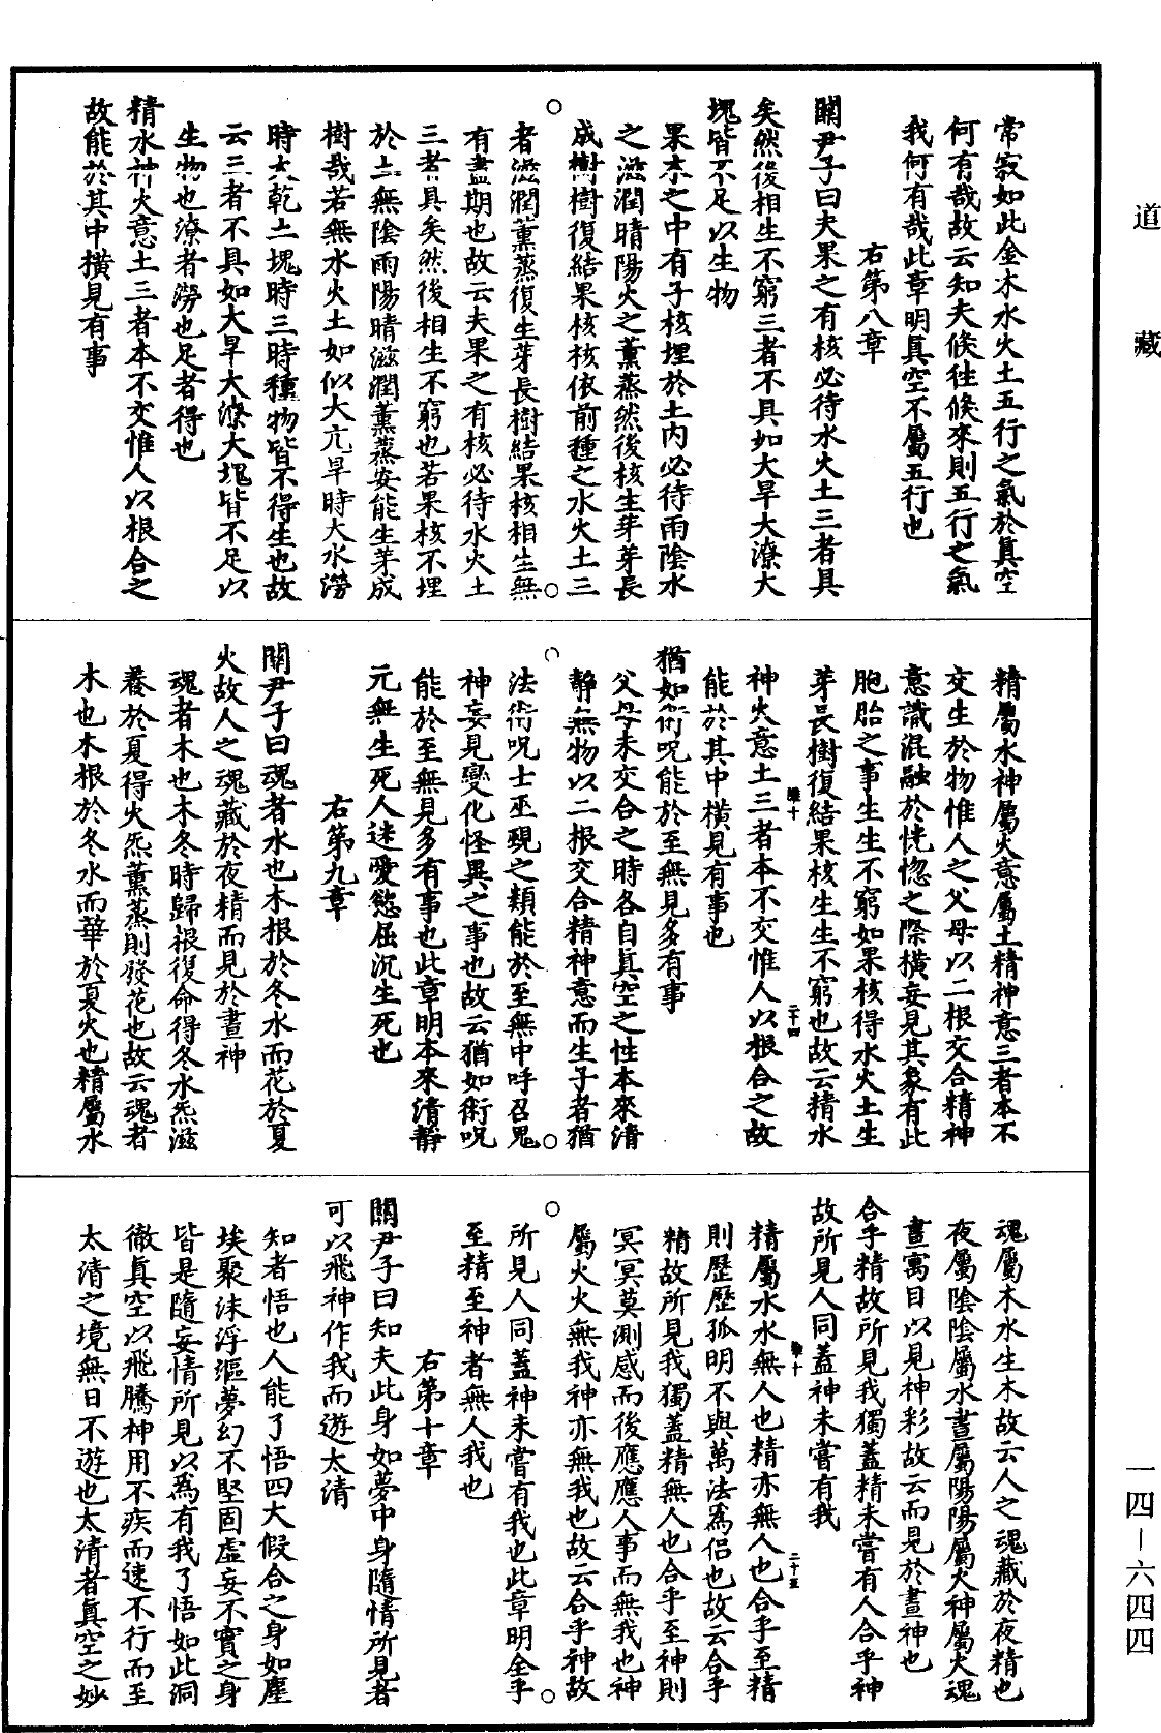 道藏
常寂如此金木水火土五行之氣於真空
何有哉故云知夫倏往倏來則五行之氣
我何有哉此章明真空不屬五行也
右第八章
關尹子曰夫果之有核必待水火土三者具
矣然後相生不窮三者不具如大旱大潦大
塊皆不足以生物
果木之中有子核埋於土內必待雨陰水
之滋潤晴陽火之薰蒸然後核生芽芽長
成樹樹復結果核核依前種之水火土三
者滋潤薰蒸復生芽長樹結果核相生無
有盡期也故云夫果之有核必待水火土
三者具矣然後相生不窮也若果核不埋
於土無陰雨陽晴滋潤薰蒸安能生芽成
樹哉若無水火土如似大亢旱時大水澇
時太乾土塊時三時種物皆不得生也故
云三者不具如大旱大潦大塊皆不足以
生物也潦者澇也足者得也
精水神火意土三者本不交惟人以根合之
故能於其中橫見有事
精屬水神屬火意屬土精神意三者本不
交生於物惟人之父母以二根交合精神
意識混融於恍惚之際橫妄見其象有此
胞胎之事生生不窮如果核得水火土生
芽長樹復結果核生生不窮也故云精水
神火意土三者本不交惟人以根合之故
能於其中橫見有事也
猶如術呪能於至無見多有事
父母未交合之時各自真空之性本來清
靜無物以二根交合精神意而生子者猶
法術呪士巫覡之類能於至無中呼召鬼
神妄見變化怪異之事也故云猶如術呪
能於至無見多有事也此章明本來清靜
元無生死人迷愛慾屈沉生死也
右第九章
關尹子曰魂者水也木根於冬水而花於夏
火故人之魂藏於夜精而見於晝神
魂者木也木冬時歸根復命得冬水炁滋
養於夏得火炁薰蒸則發花也故云魂者
木也木根於冬水而華於夏火也精屬水
魂屬木水生木故云人之魂藏於夜精也
夜屬陰陰屬水晝屬陽陽屬火神屬火魂
晝寓目以見神彩故云而見於晝神也
合乎精故所見我獨蓋精未嘗有人合乎神
故所見人同蓋神未嘗有我
精屬水水無人也精亦無人也合乎至精
則歷歷孤明不與萬法為侶也故云合乎
精故所見我獨蓋精無人也合乎至神則
冥冥莫測感而後應應人事而無我也神
屬火火無我神亦無我也故云合乎神故
所見人同蓋神未嘗有我也此章明全乎
至精至神者無人我也
右第十章
關尹子曰知夫此身如夢中身隨情所見者
可以飛神作我而遊太清
知者悟也人能了悟四大假合之身如塵
埃聚沫浮漚夢幻不堅固虛妄不實之身
皆是隨妄情所見以為有我了悟如此洞
徹真空以飛騰神用不疾而速不行而至
太清之境無日不遊也太清者真空之妙
一四—六四四